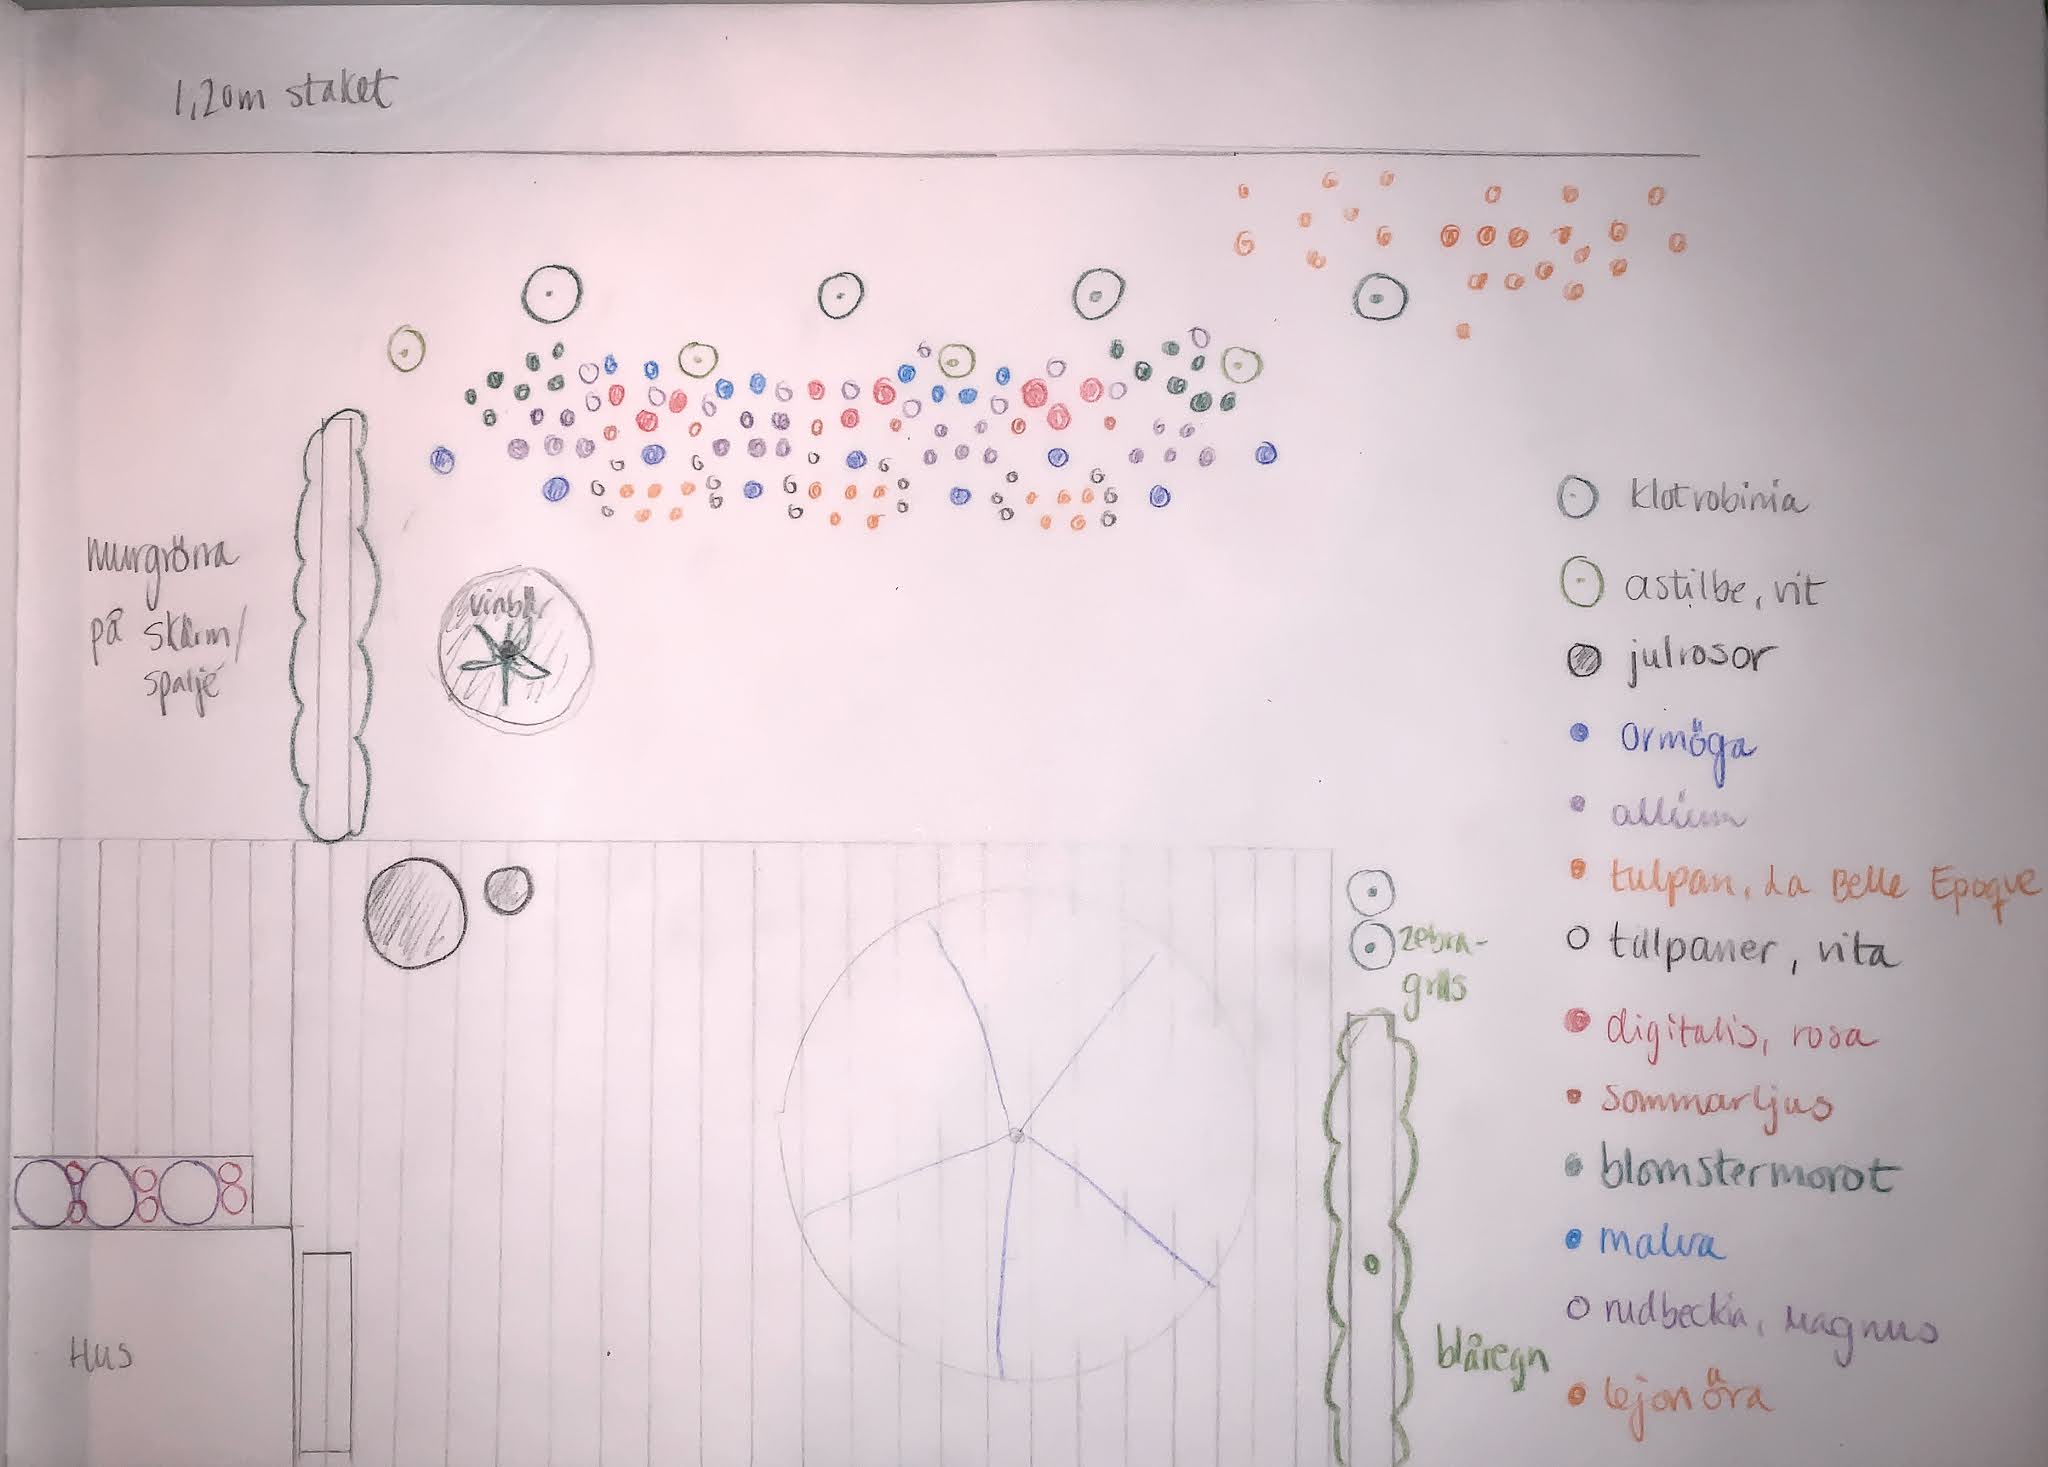 1,20m staket
murgröna
på skärm/
spaljé
vinbär
klotrobinia
astilbe, vit
julrosor
ormöga
allium
tulpan, La Belle Epoque
tulpaner, vita
digitalis, rosa
sommarljus
blomstermorot
malva
rudbeckia, Magnus
lejonöra
zebra-
gräs
blåregn
HUS